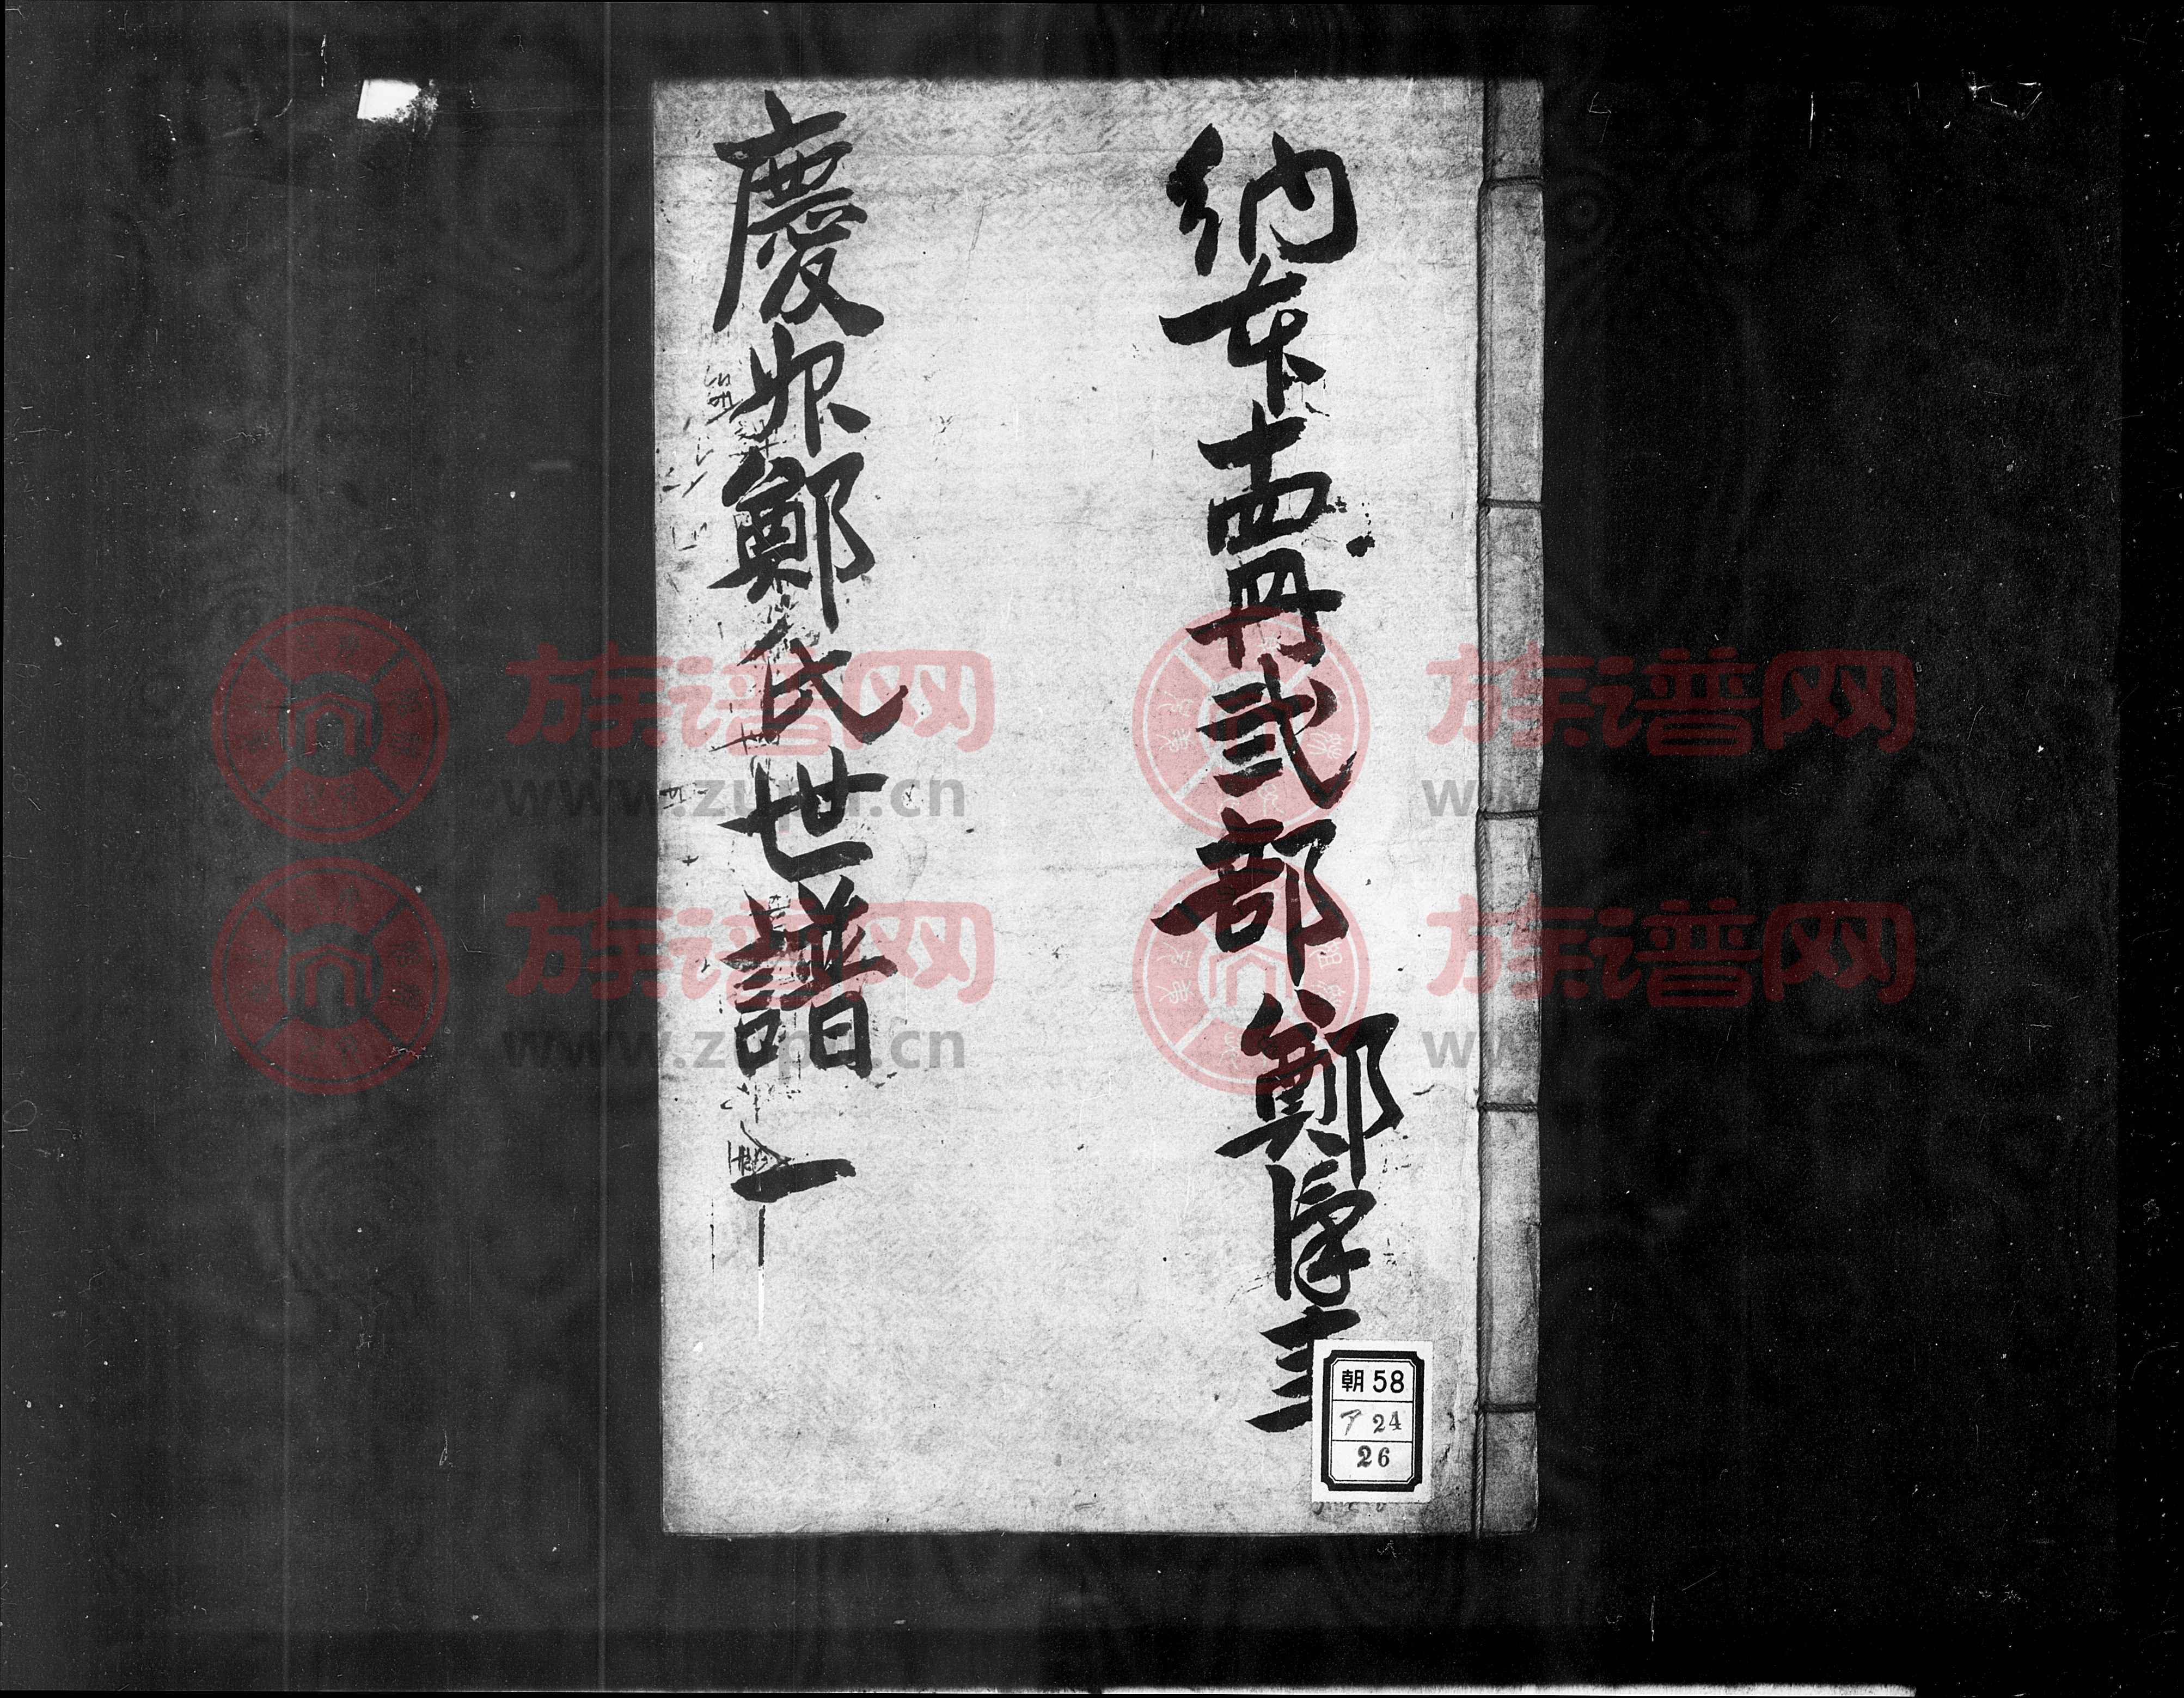 納本十四冊弐部鄭淳圭
慶州鄭氏世譜 一
朝 58
ア 24
26
族谱网
www.zupu.cn
族谱网
族谱网
www.zupu.cn
族谱网